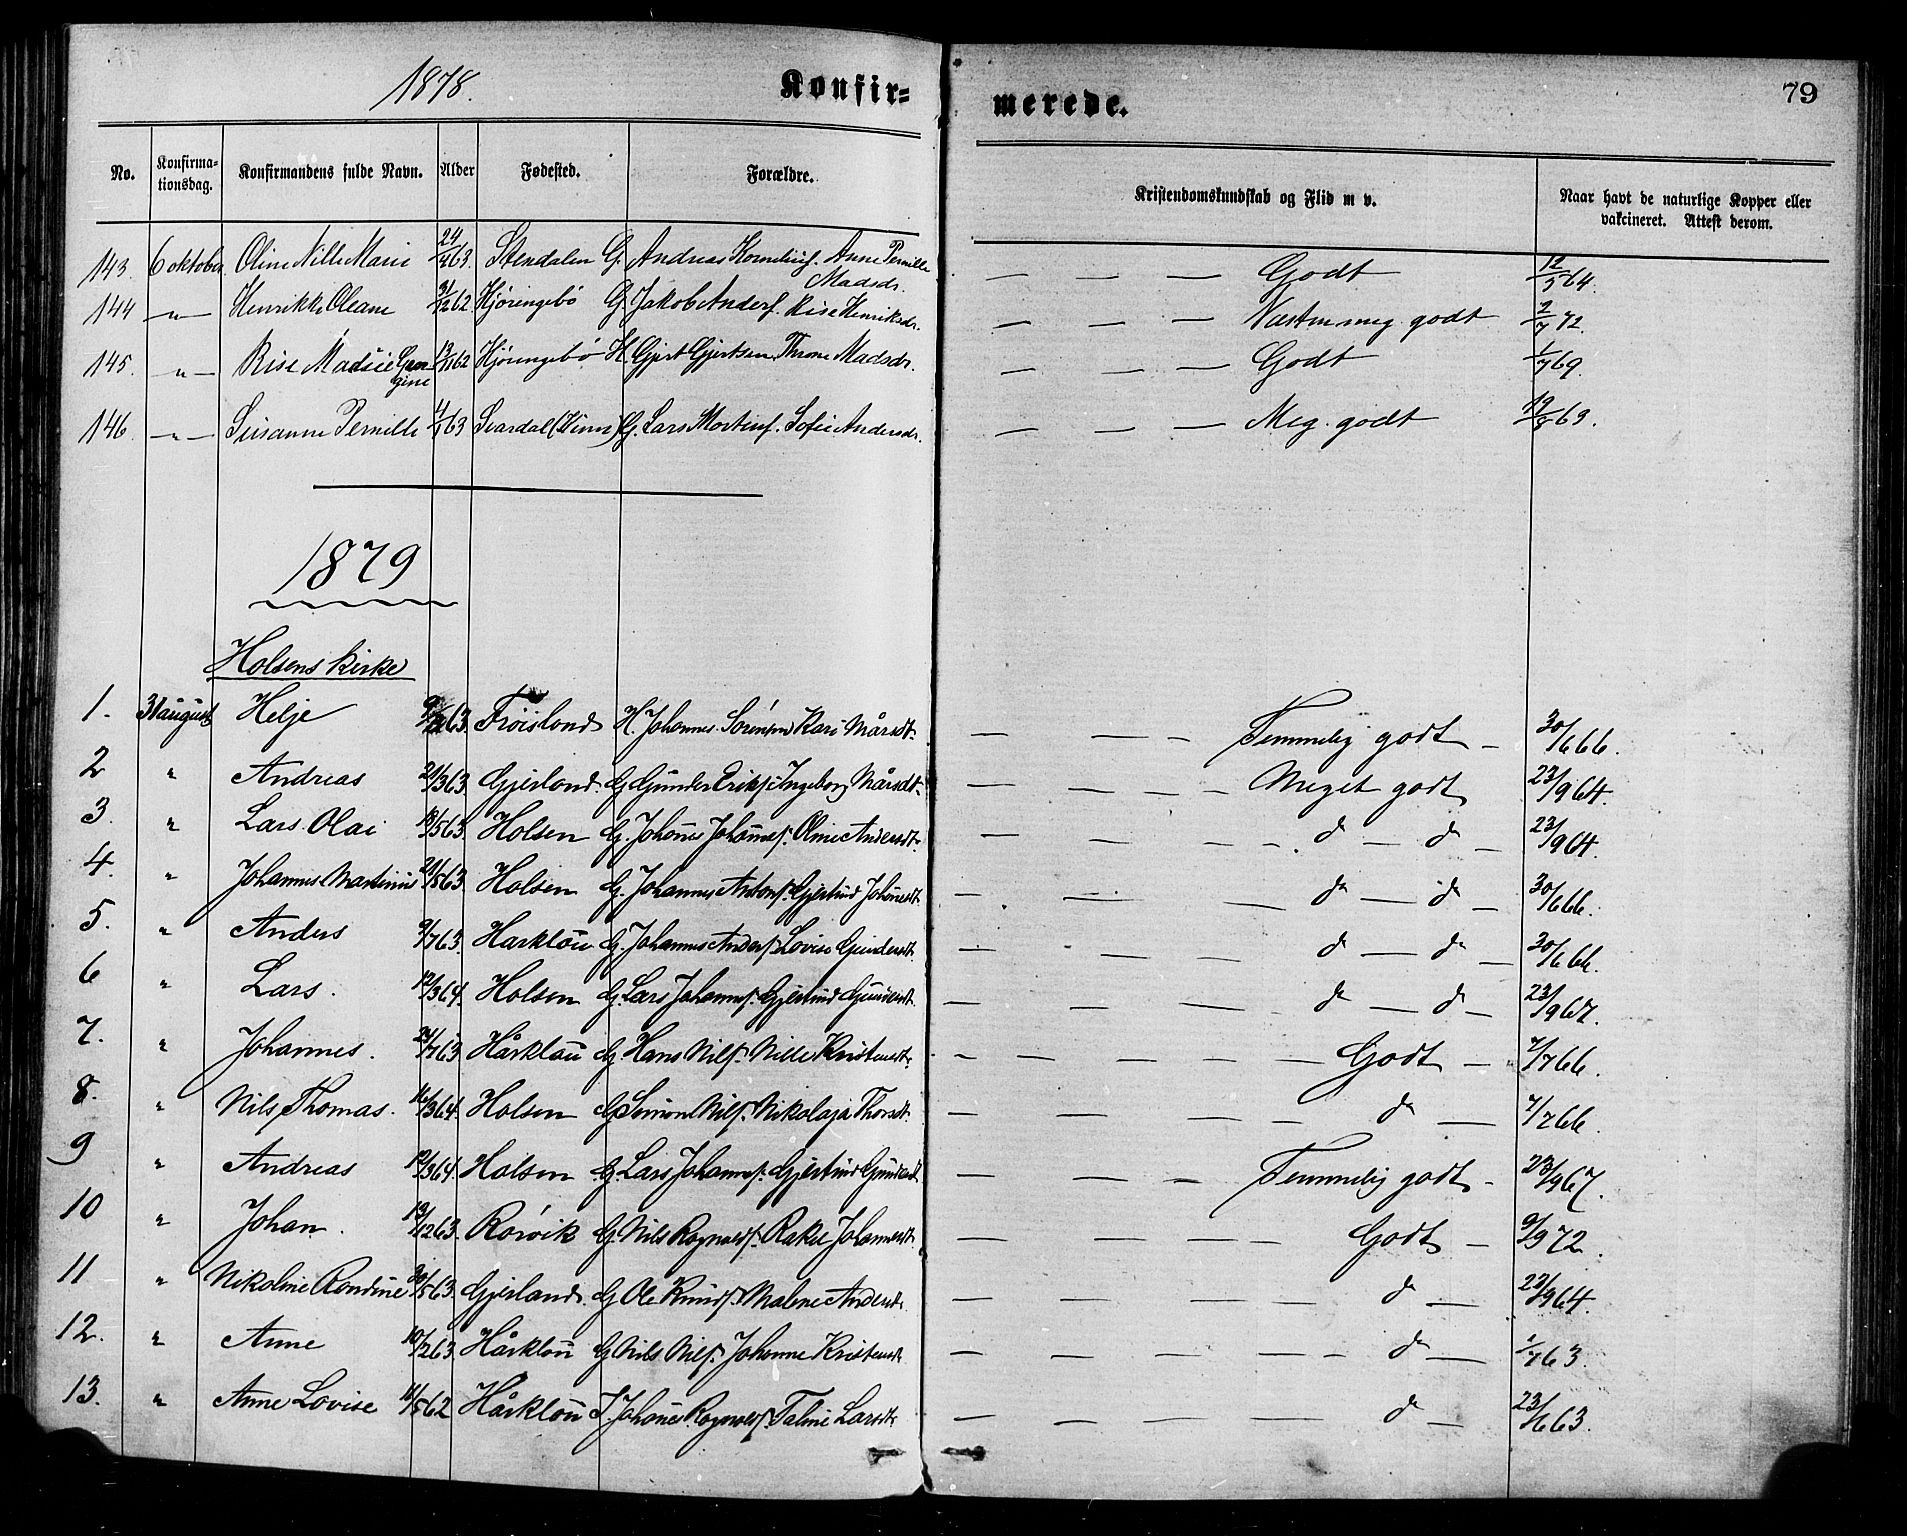 1878. Konfir= merede. 79
No. Konfirma-tionsdag. Konfirmandens fulde Navn. Alder Fødested. Forældre. Kristendomskundskab og Flid m v. Naar havt de naturlige Kopper eller vakcineret. Attest derom.
143. 6 oktober Oline Nille Marie 24/4 63. Stendalen G. Andreas Kornelius. Anne Pernille Madsdr. — — — Godt 12/5 64.
144 —„— Henrikke Oleane 31/12 62. Hjørengebø G. Jakob Anders. Rise Henriksdr. — — — Næsten meg. godt 2/7 72.
145. —„— Rise Madsie Gurgine 13/11 62 Hjørengebø H. Gjert Gjertsen Throne Madsdr. — — — Godt 1/7 69.
146. —„— Susanne Pernille 4/4 63 Svardal (Kinn) G. Lars Mortens. Sofie Andersdr. — — — Meg. godt 19/8 63.
1879
Holsens kirke
1. 31 august Helje 63. Frøisland H. Johannes Sørensen Kari Mårsdt. — — — Temmelig godt — 30/6 66.
2 „ Andreas 21/3 63 Gjerland G Gunder Eriks. Ingeborg Mårsdt. — — — — Meget godt 23/9 64.
3. „ Lars Olai 13/5 63. Holsen G. Johannes Johannes. Oline Andersdt. — — — — d — d — 23/9 64.
4. „ Johannes Martinius 21/5 63. Holsen G. Johannes Antons. Gjertrud Johannesdt. — — — d — d — 30/6 66.
5. „ Anders 9/7 63. Harklou G. Johannes Anders. Lovise Gundersdt. — — — d — d — 30/6 66.
6 „ Lars. 12/3 64. Holsen G. Lars Johannes. Gjertrud Gundersdt. — — — d — d — 23/9 67.
7. „ Johannes. 27/7 63. Hårklou G Hans Nils. Nille Kristensdt. — — — — Godt — 7/7 66.
8. „ Nils Thomas. 16/3 64. Holsen G Simon Nils. Nikolaja Thorsdt. — — — — d — 7/7 66.
9 „ Andreas 12/3 64. Holsen G. Lars Johannes. Gjertrud Gundersdt — — — Temmelig godt — 23/9 67.
10 „ Johan. 13/12 63. Rørvik G. Nils Rognvalds. Rakel Johannesdt. — — — — Godt — 9/9 72.
11 „ Nikoline Rondine 30/5 63. Gjerland. G Ole Knuds. Malene Andersdt. — — — — d — 23/9 64.
12. „ Anne 10/2 63. Hårklou G Nils Nils. Johanne Kristensdt. — — — — — d — 1/7 63.
13. „ Anne Lovise 11/5 62 Hårklou J. Johannes Rognvalds. Taline Larsdt. — — — — d — 23/6 63.